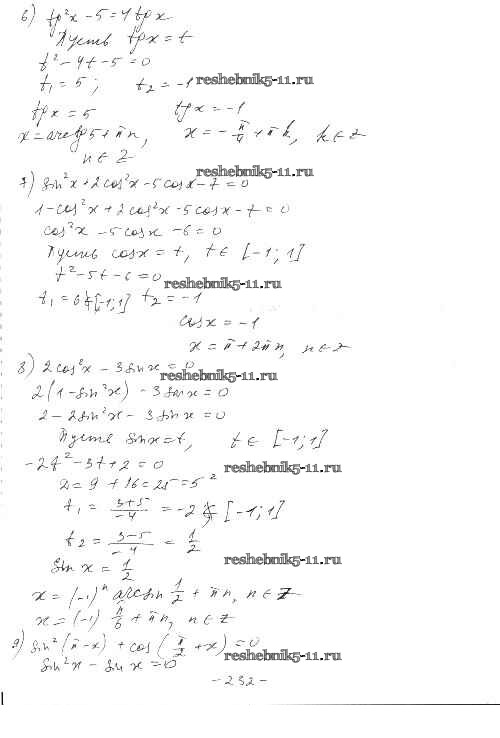 6) tg²x - 5 = 4 tgx
Пусть tgx = t
t² - 4t - 5 = 0
t₁ = 5; t₂ = -1 reshebnik5-11.ru
tgx = 5 tgx = -1
x = arctg5 + πn, x = -π/4 + πk, k ∈ Z
n ∈ Z
reshebnik5-11.ru
7) sin²x + 2cos²x - 5cosx - 7 = 0
1 - cos²x + 2cos²x - 5cosx - 7 = 0
cos²x - 5cosx - 6 = 0
Пусть cosx = t, t ∈ [-1; 1]
t² - 5t - 6 = 0
reshebnik5-11.ru
t₁ = 6 ∉ [-1; 1] t₂ = -1
cosx = -1
x = π + 2πn, n ∈ Z
8) 2cos²x - 3sinx = 0
reshebnik5-11.ru
2(1 - sin²x) - 3sinx = 0
2 - 2sin²x - 3sinx = 0
Пусть sinx = t, t ∈ [-1; 1]
-2t² - 3t + 2 = 0 reshebnik5-11.ru
D = 9 + 16 = 25 = 5²
t₁ = (3+5)/-4 = -2 ∉ [-1; 1]
t₂ = (3-5)/-4 = 1/2
sin x = 1/2 reshebnik5-11.ru
x = (-1)ⁿ arcsin 1/2 + πn, n ∈ Z
x = (-1) π/6 + πn, n ∈ Z
9) sin²(π - x) + cos(π/2 + x) = 0
sin²x - sin x = 0 reshebnik5-11.ru
- 232 -